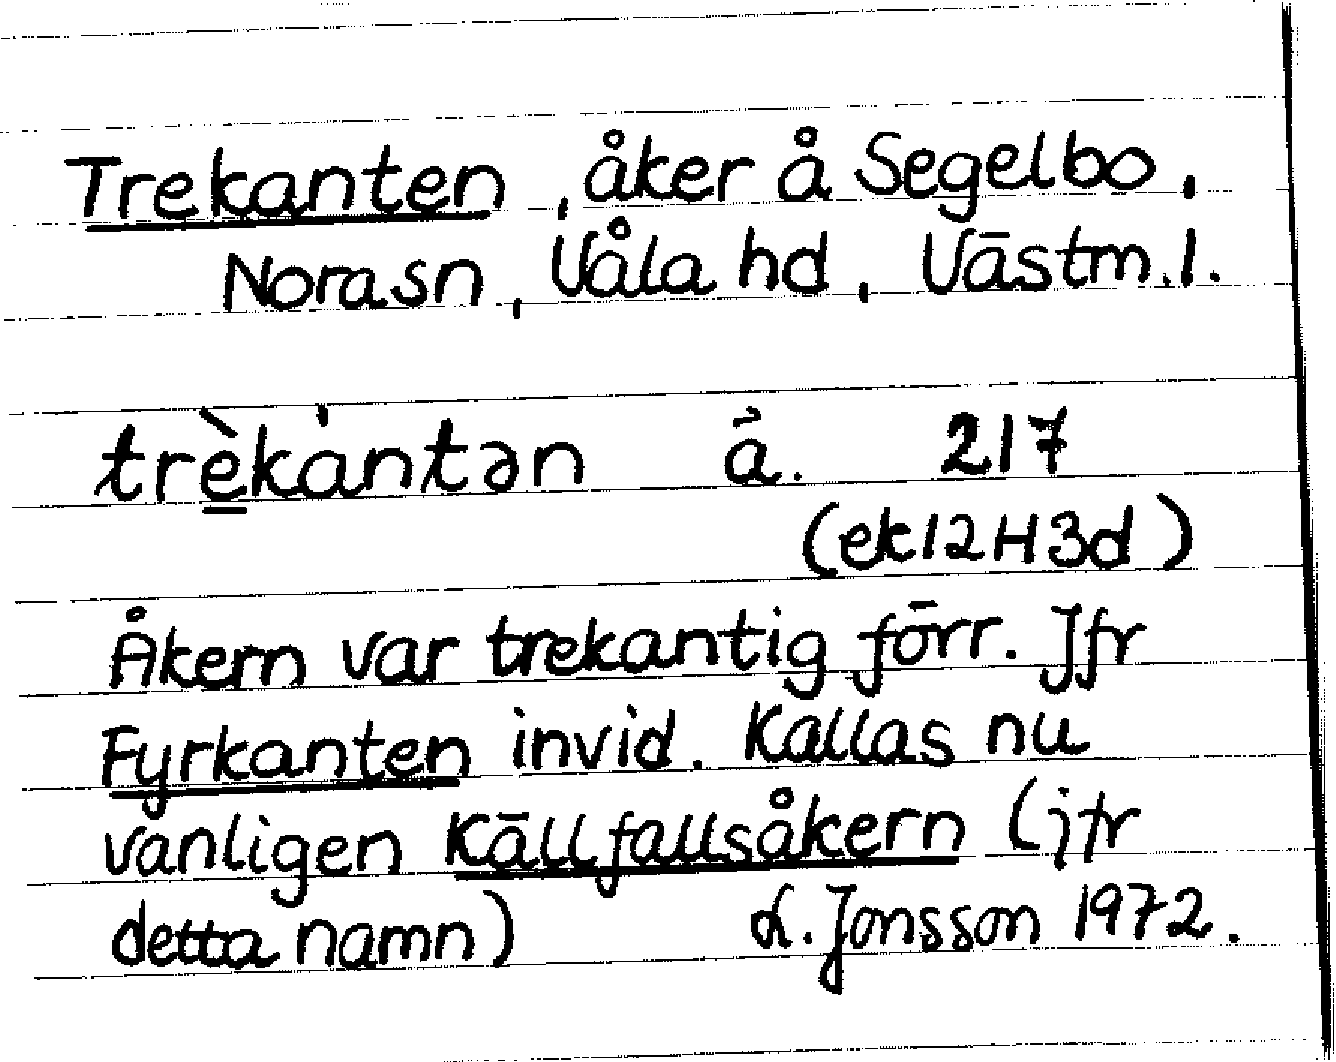 Trekanten, åker å Segelbo,
Nora sn, Våla hd, Västm. l.
trèkántən ā̀. 217
(ek 12H3d)
Åkern var trekantig förr. Jfr
Fyrkanten invid. Kallas nu
vanligen Källfallsåkern (jfr
detta namn) L. Jonsson 1972.